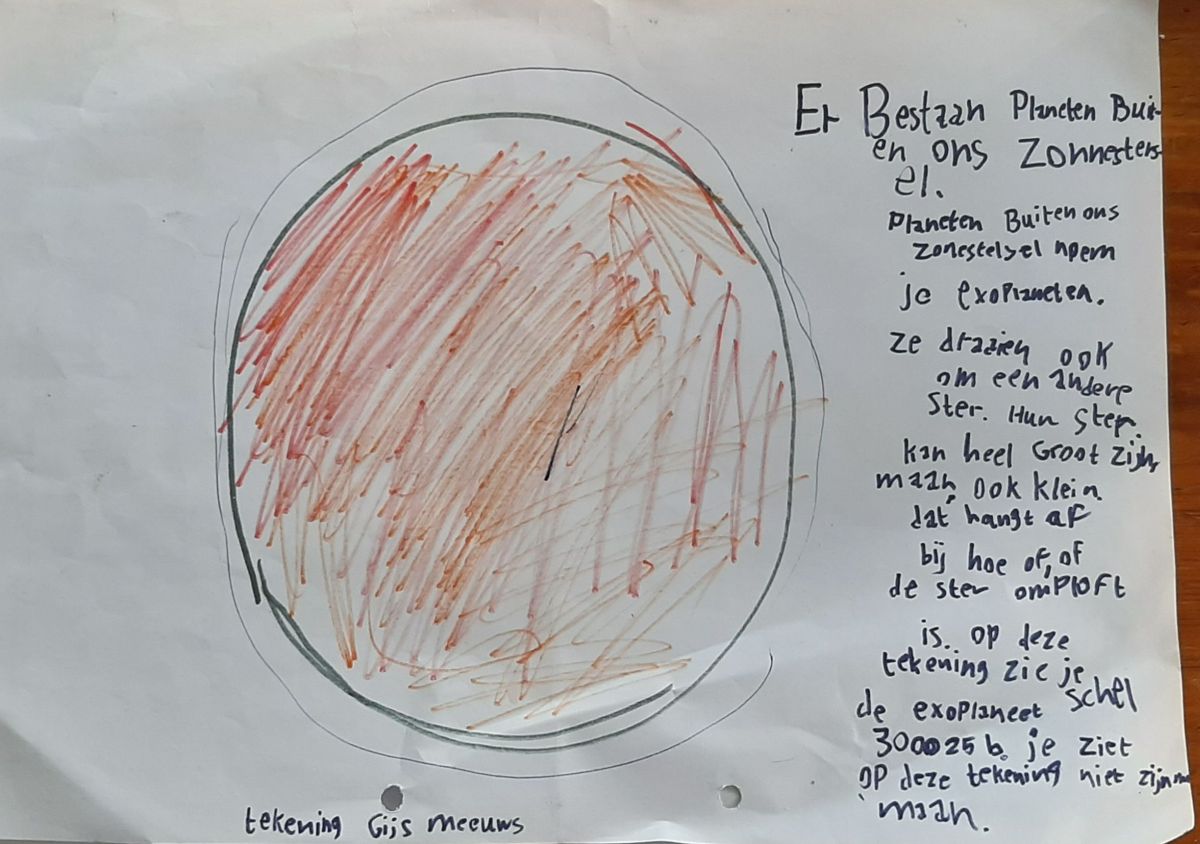 Er Bestaan Planeten Buit
en ons Zonnesters
el.
Planeten Buiten ons
zonestelsel noem
je exoPlaneten.
ze draaien ook
om een andere
Ster. Hun ster.
kan heel Groot zijn,
maar, ook klein.
dat hangt af
bij hoe of, of
de ster omPloft
is. op deze
tekening zie je
de exoPlaneet schel
300025 b. je ziet
op deze tekening niet zijn
maan.
tekening Gijs meeuws